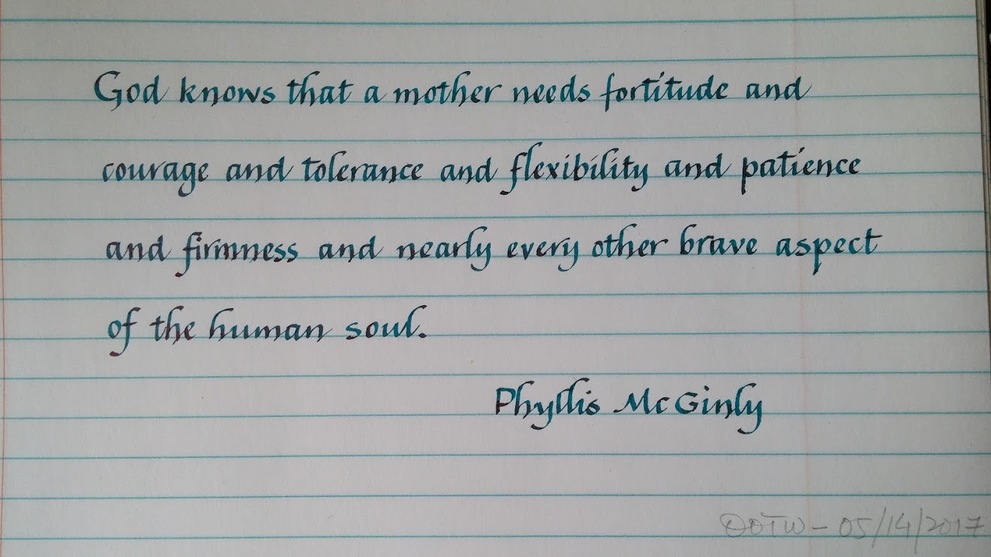 God knows that a mother needs fortitude and
courage and tolerance and flexibility and patience
and firmness and nearly every other brave aspect
of the human soul.
Phyllis McGinly
QOTW - 05/14/2017